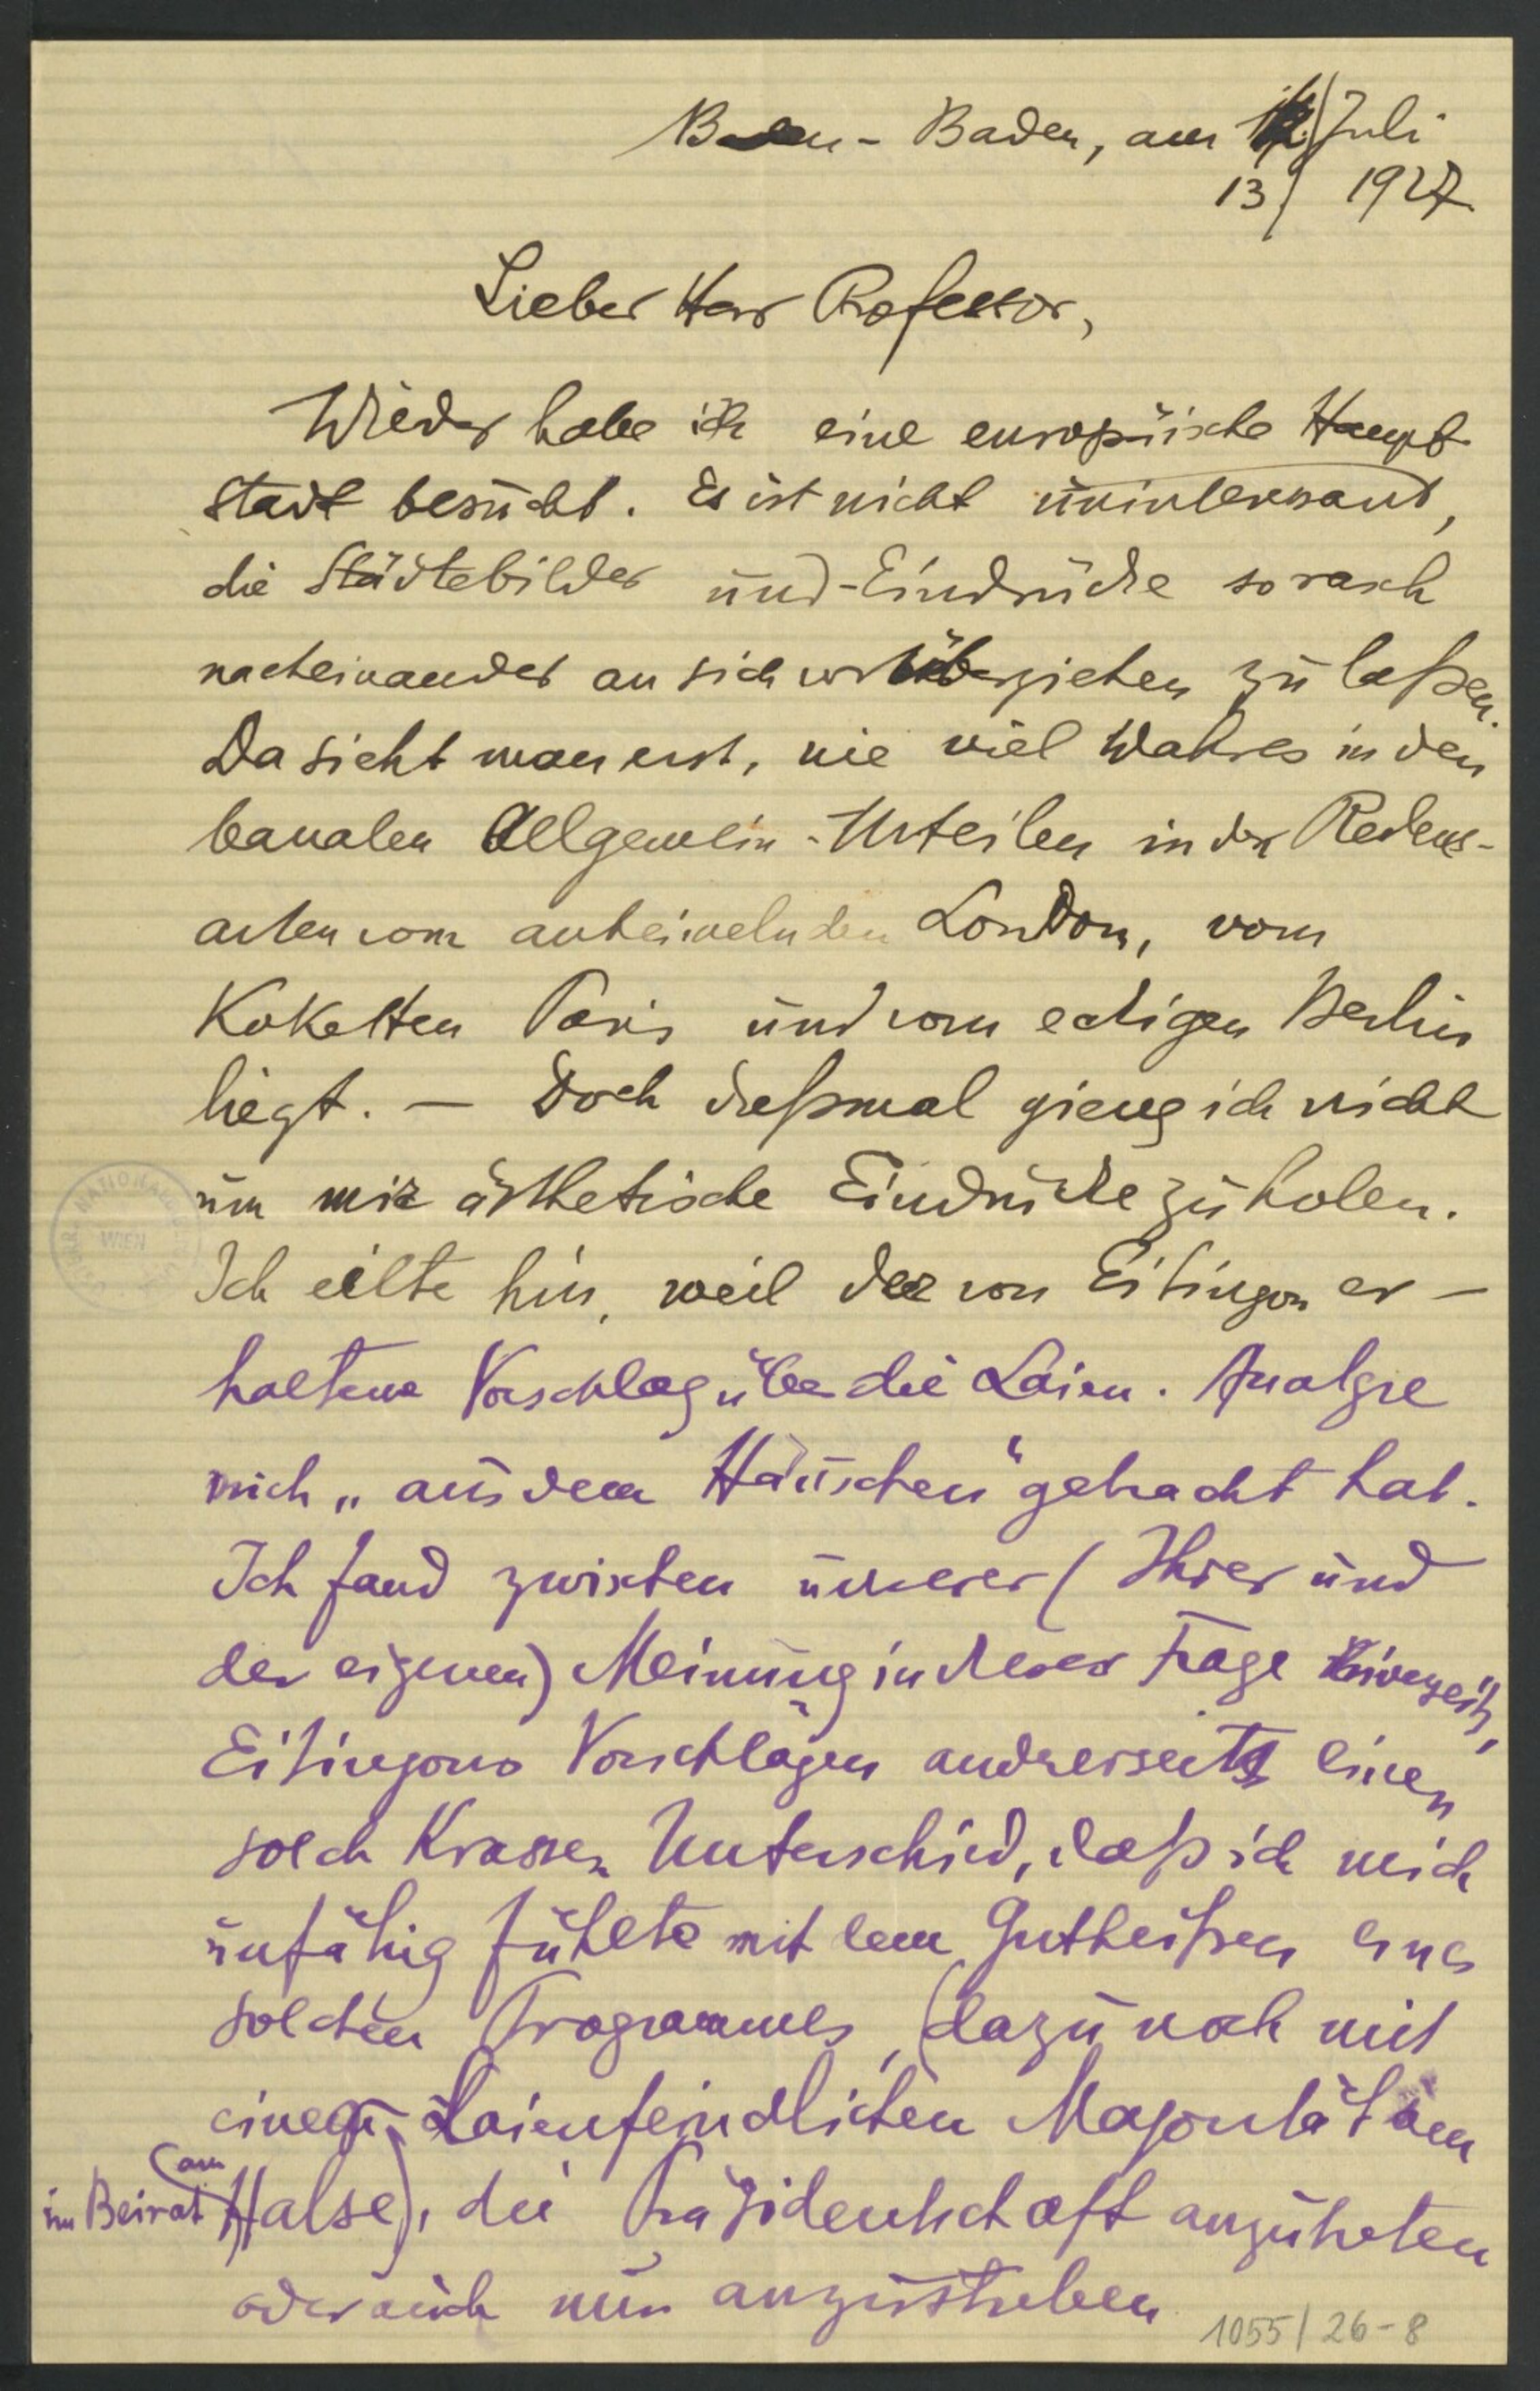 Baden-Baden, am 12./ Juli
13./ 1927.
Lieber Herr Professor,
Wieder habe ich eine europäische Haupt
stadt besucht. Es ist nicht uninteressant,
die Städtebilder und -Eindrücke so rasch
nacheinander an sich vorüberziehen zu laßen.
Da sieht man erst, wie viel Wahres in den
banalen Allgemein-Urteilen in den Redens-
arten vom anheimelnden London, vom
Koketten Paris und vom eckigen Berlin
liegt. — Doch dießmal gieng ich nicht
um mir ästhetische Eindrücke zu holen.
Ich eilte hin, weil der von Eitingon er-
haltene Vorschlag über die Laien-Analyse
mich „aus dem Häuschen“ gebracht hat.
Ich fand zwischen unserer (Ihrer und
der eigenen) Meinung in dieser Frage einerseits,
Eitingons Vorschlägen andrerseits einen
solch Krassen Unterschied, daß ich mich
unfähig fühlte mit dem Gutheißen eines
solchen Programmes, (dazu noch mit
einer Laienfeindlichen Majorität am
im Beirat am Halse), die Präsidentschaft anzutreten
oder auch nur anzustreben
1055/26-8
NATIONAL
WIEN